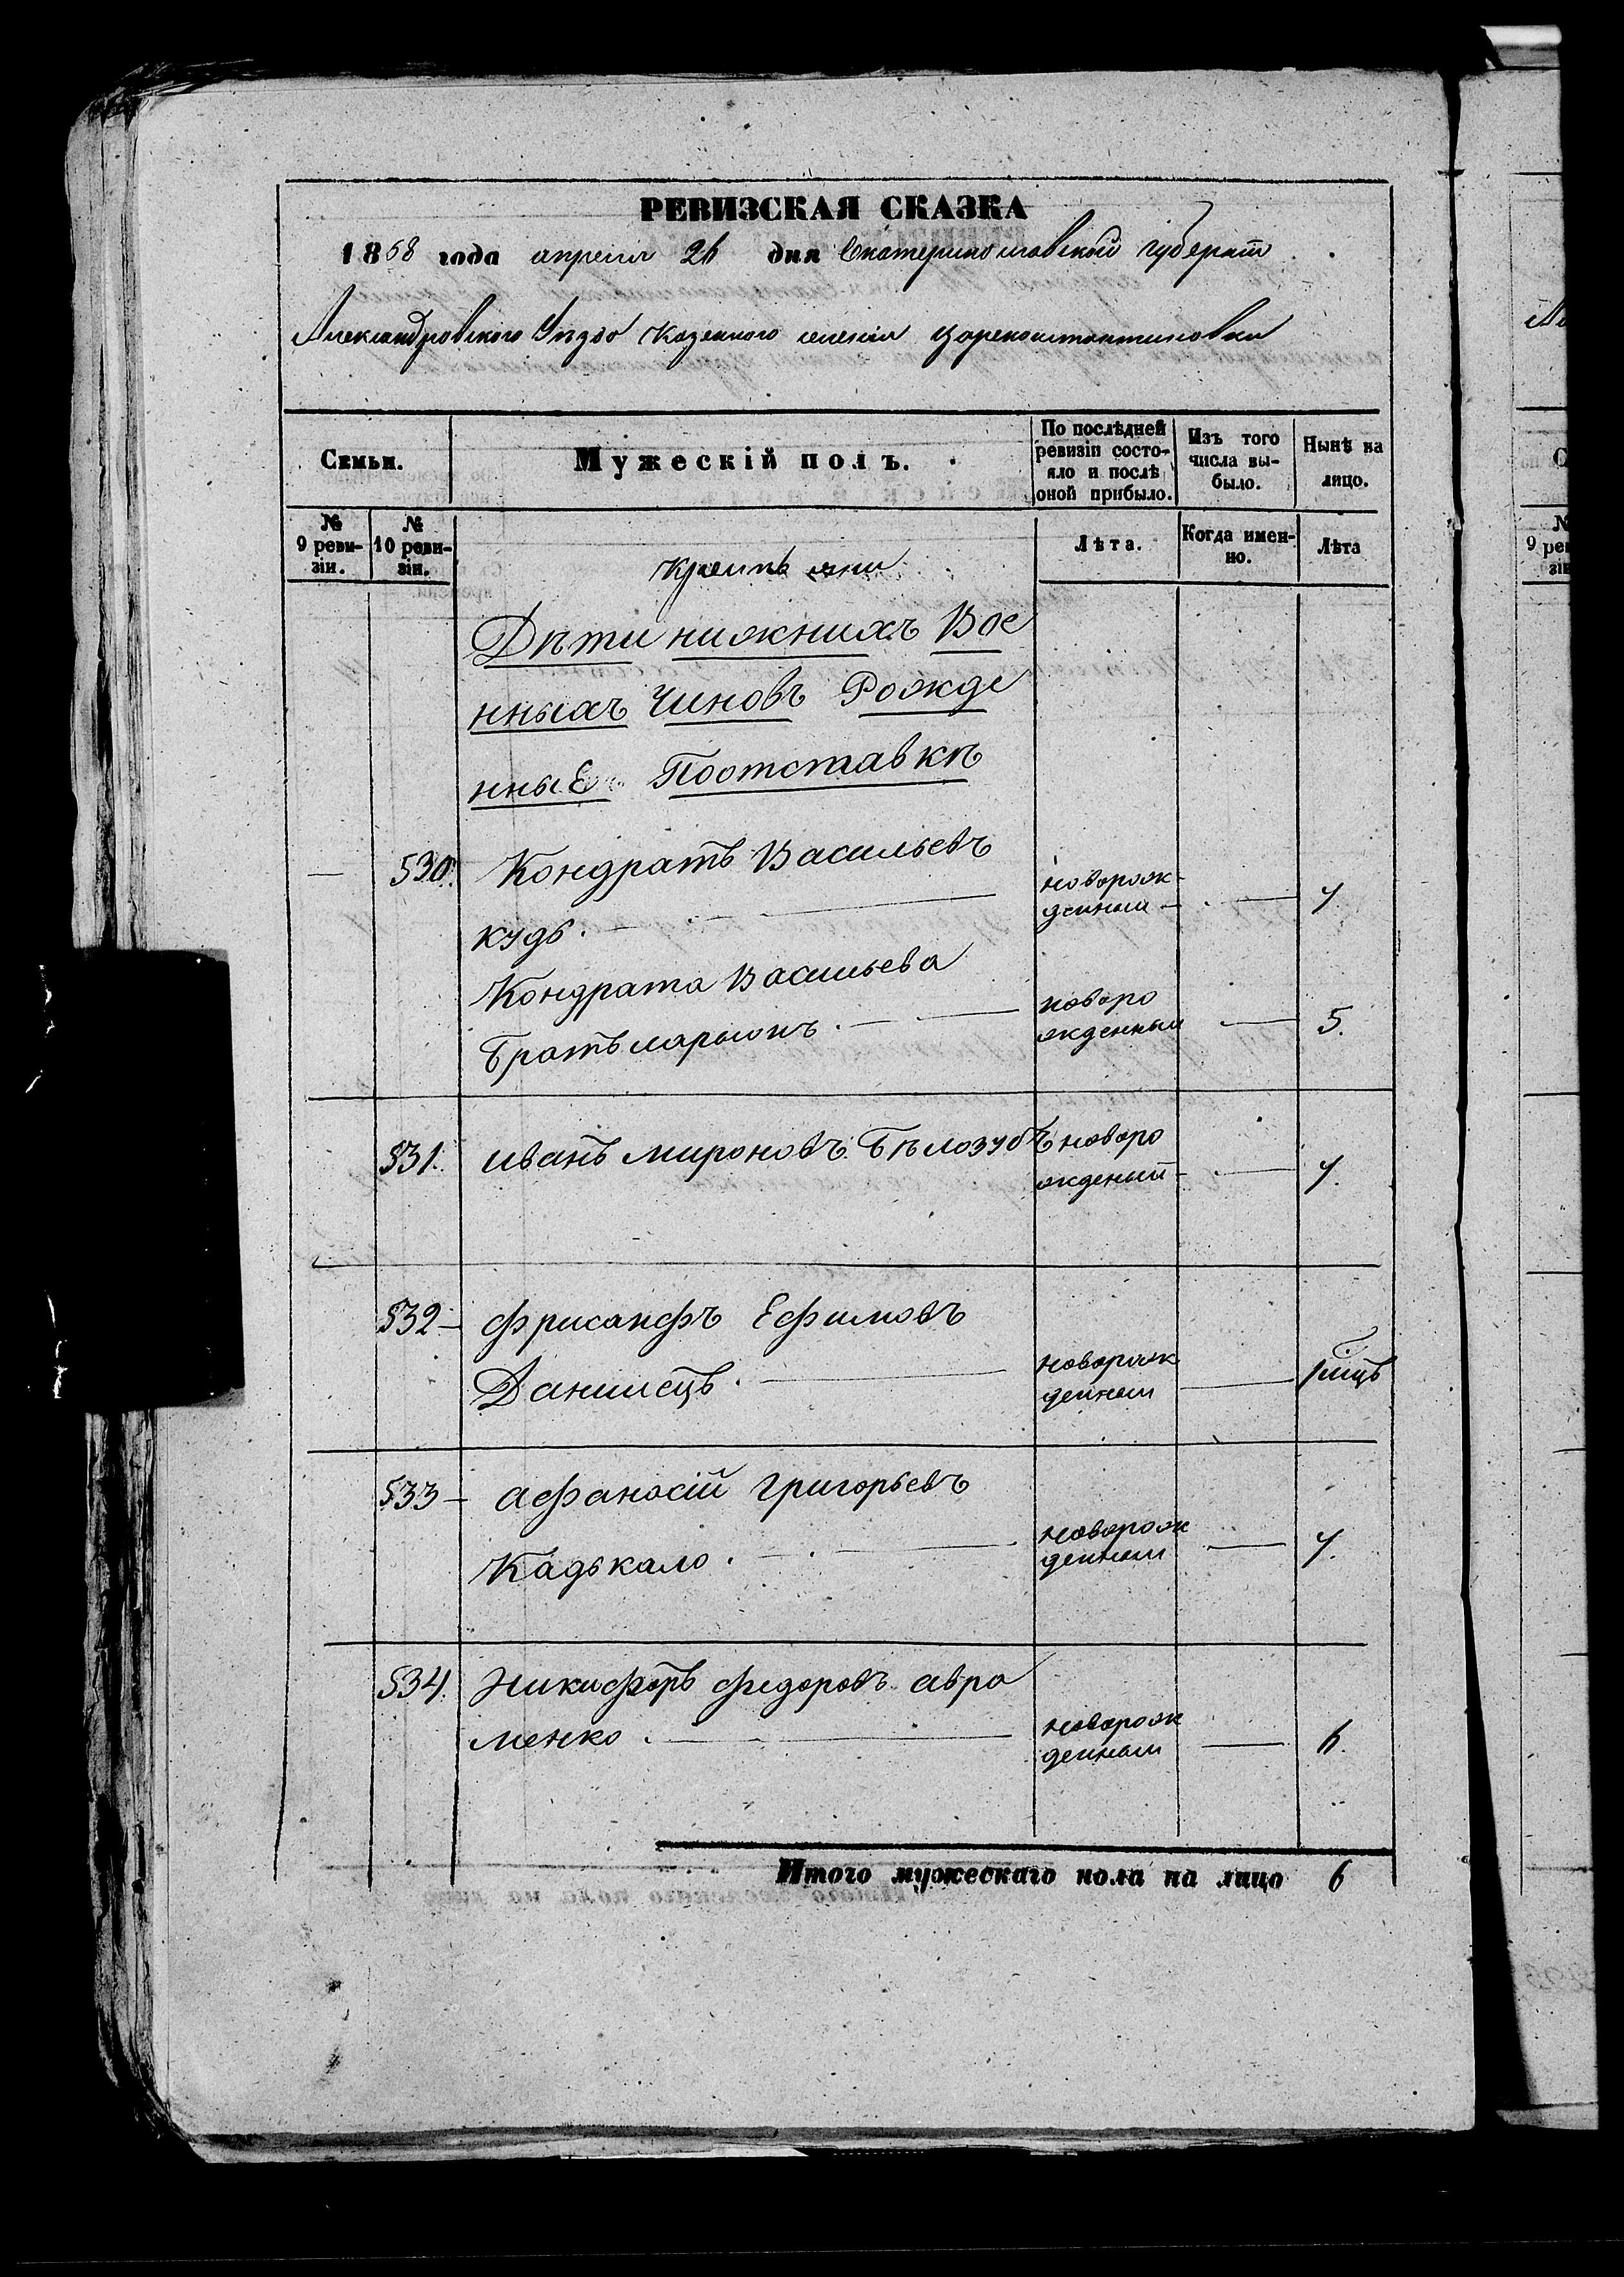 РЕВИЗСКАЯ СКАЗКА
1858 года апреля 26 дня Екатеринославской губернiи
Александровского Уѣзда Казенного селенiя Цареконстантиновки
Семьи.
Мужескiй полъ.
По послѣдней ревизiи состо-
яло и послѣ
оной прибыло.
Изъ того
числа вы-
было.
Нынѣ на
лицо.
№
9 реви-
зiи.
№
10 реви-
зiи.
Лѣта.
Когда имен-
но.
Лѣта
Крестьяни
Дѣти нижнихъ Вое
нныхъ Чиновъ Рожде
нныЕ Поотставкѣ
530. Кондратъ Васильевъ
кудь.
новорож-
денный
4
Кондрата Васильева
Братъ ларыонъ.
новоро
жденный
5.
531. иванъ мироновъ. Бѣлозубъ
новоро
жденый
4.
532 фрисанфъ Ефимовъ
Данилецъ.
новорож
денный
533 афанасiй григорьевъ
Кадькало.
новорож
денный
4.
534. Никифоръ федоровъ авра
менко.
новорож
денный
6.
Итого мужескаго пола на лицо 6